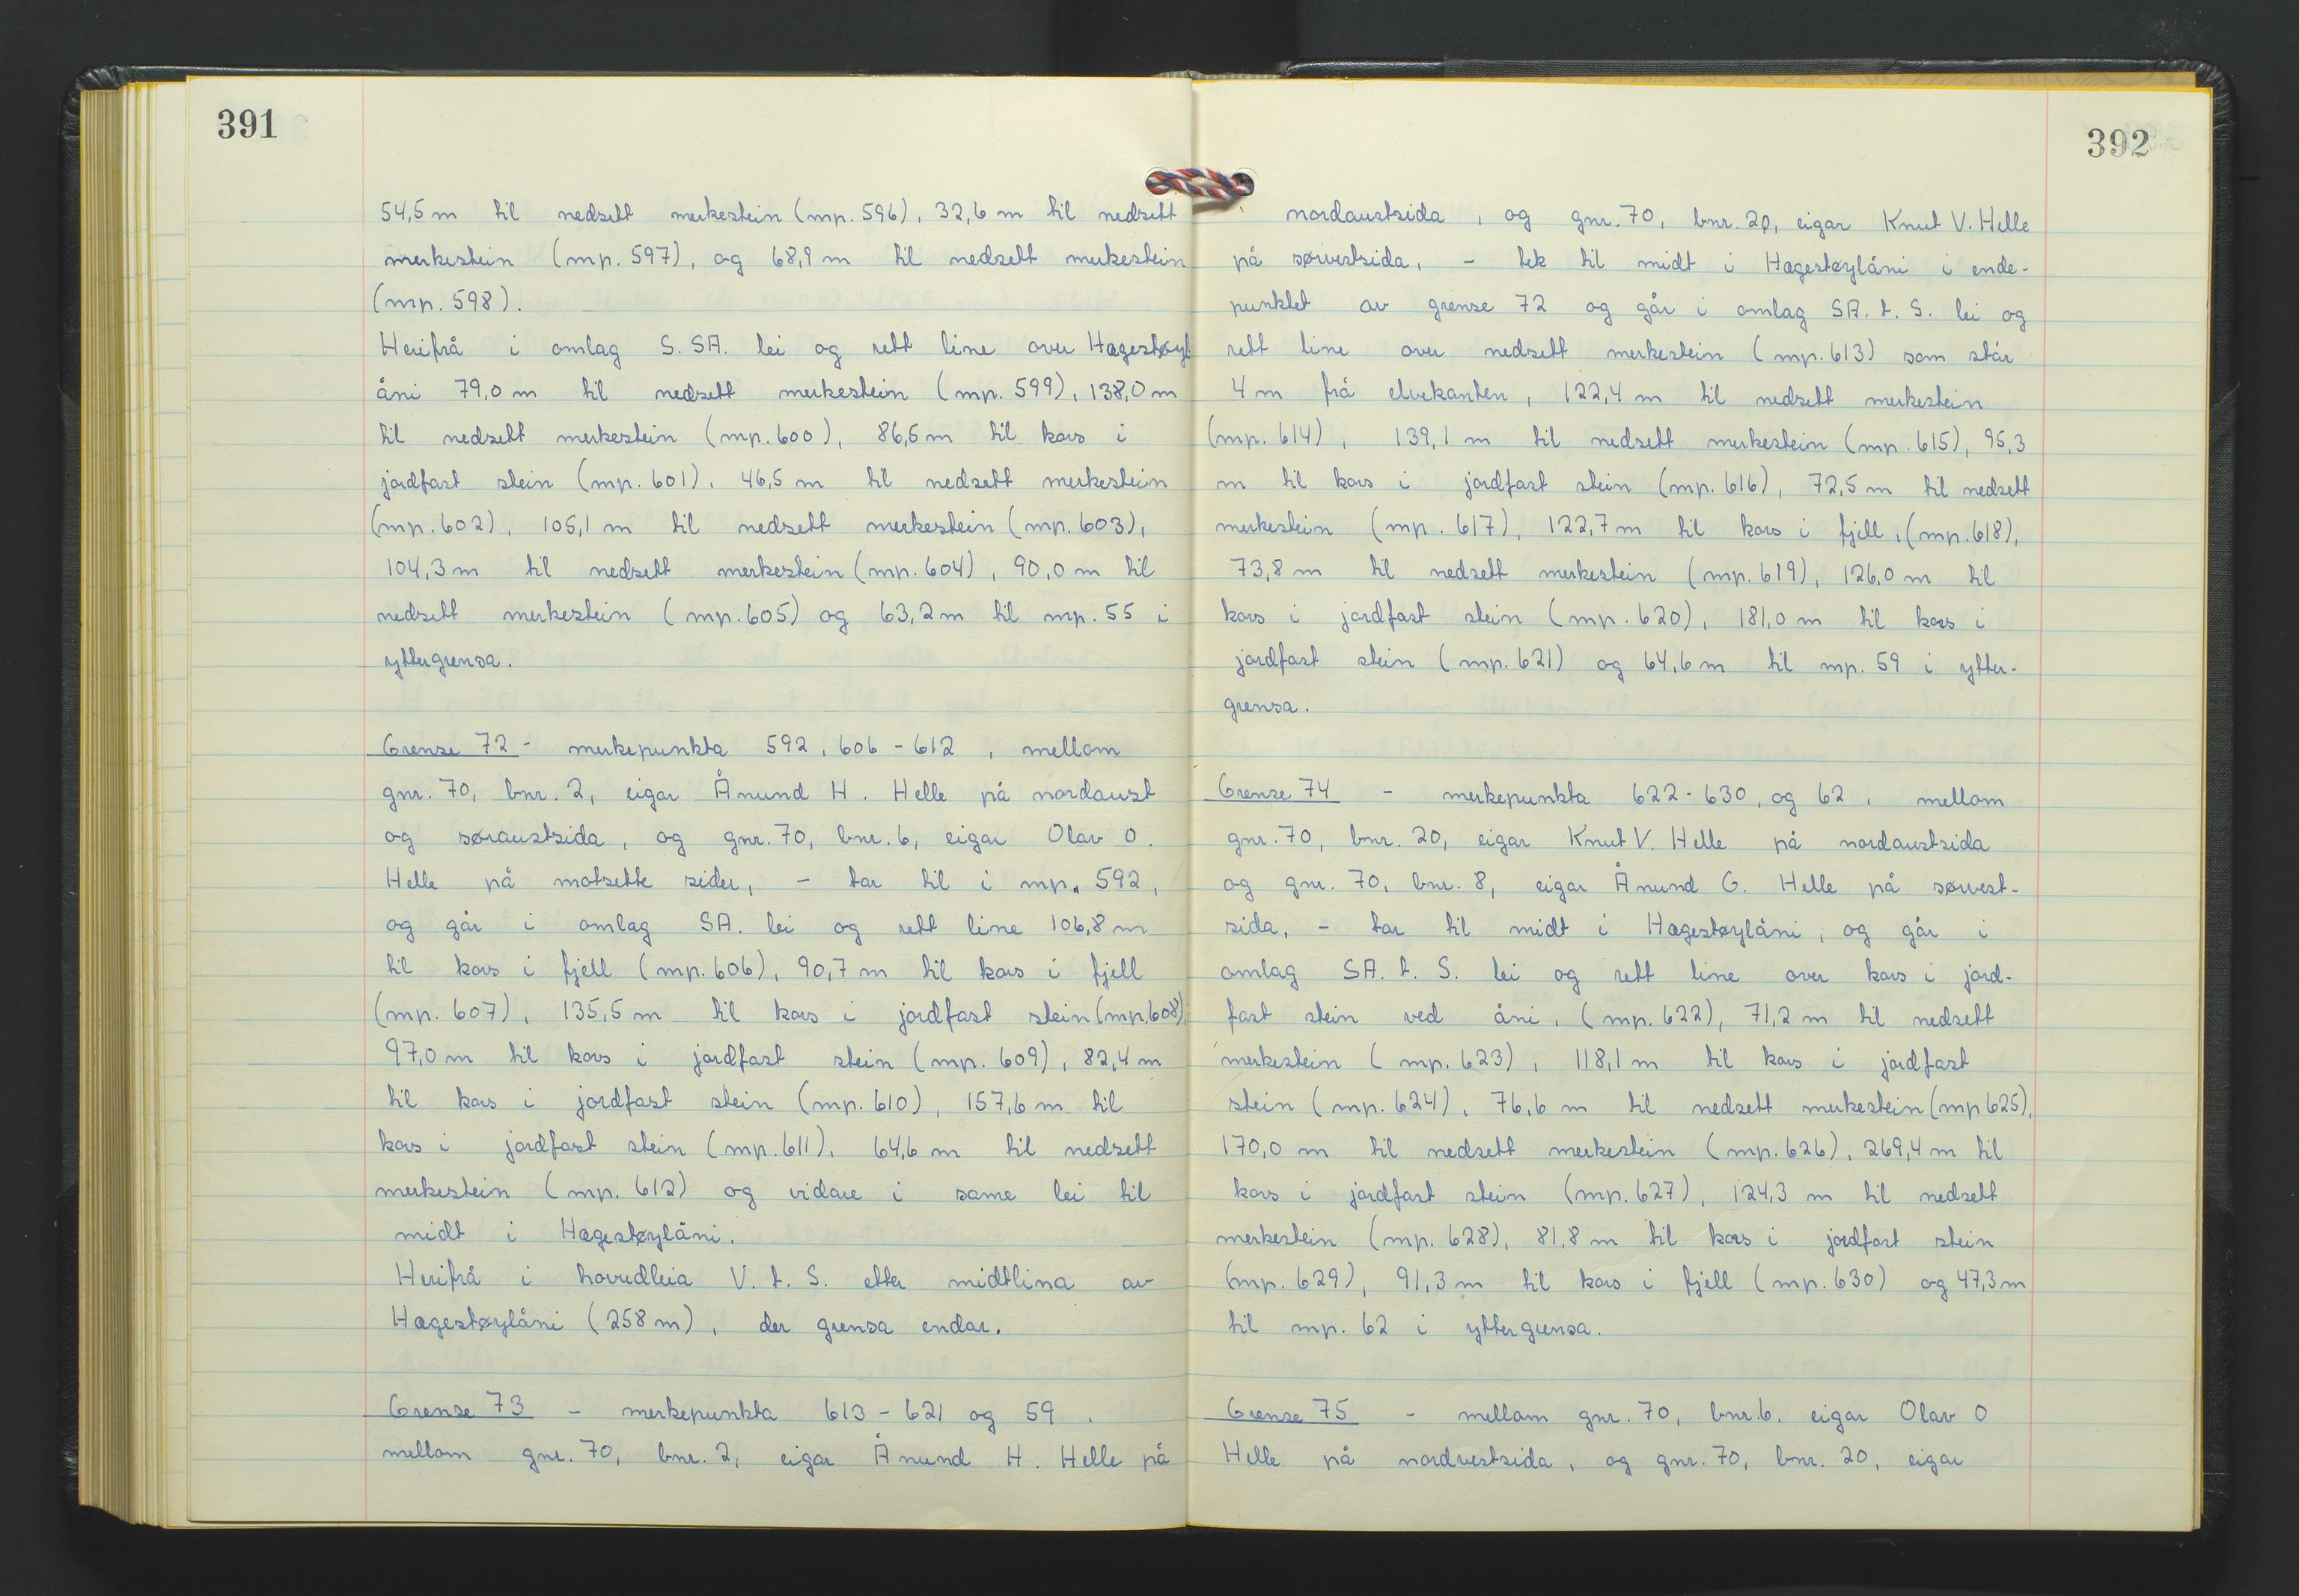 391
54,5 m til nedsett merkestein (mp. 596), 32,6 m til nedsett
merkestein (mp. 597), og 68,9 m til nedsett merkestein
(mp. 598).
Herifrå i omlag S. SA. lei og rett line over Hagestøyl
åni 79,0 m til nedsett merkestein (mp. 599), 138,0 m
til nedsett merkestein (mp. 600), 86,5 m til kors i
jordfast stein (mp. 601), 46,5 m til nedsett merkestein
(mp. 602), 105,1 m til nedsett merkestein (mp. 603),
104,3 m til nedsett merkestein (mp. 604), 90,0 m til
nedsett merkestein (mp. 605) og 63,2 m til mp. 55 i
yttergrensa.
Grense 72 - merkepunkta 592, 606 - 612, mellom
gnr. 70, bnr. 2, eigar Ånund H. Helle på nordaust
og søraustsida, og gnr. 70, bnr. 6, eigar Olav O.
Helle på motsette sider, - tar til i mp. 592,
og går i omlag SA. lei og rett line 106,8 m
til kors i fjell (mp. 606), 90,7 m til kors i fjell
(mp. 607), 135,5 m til kors i jordfast stein (mp. 608),
97,0 m til kors i jordfast stein (mp. 609), 82,4 m
til kors i jordfast stein (mp. 610), 157,6 m til
kors i jordfast stein (mp. 611), 64,6 m til nedsett
merkestein (mp. 612) og vidare i same lei til
midt i Hagestøylåni.
Herifrå i hovudleia V. t. S. etter midtlina av
Hagestøylåni (258 m), der grensa endar.
Grense 73 - merkepunkta 613 - 621 og 59.
mellom gnr. 70, bnr. 2, eigar Ånund H. Helle på
392
nordaustsida, og gnr. 70, bnr. 20, eigar Knut V. Helle
på sørvestsida, - tek til midt i Hagestøylåni i ende-
punktet av grense 72 og går i omlag SA. t. S. lei og
rett line over nedsett merkestein (mp. 613) som står
4 m frå elvekanten, 122,4 m til nedsett merkestein
(mp. 614), 139,1 m til nedsett merkestein (mp. 615), 95,3
m til kors i jordfast stein (mp. 616), 72,5 m til nedsett
merkestein (mp. 617), 122,7 m til kors i fjell, (mp. 618),
73,8 m til nedsett merkestein (mp. 619), 126,0 m til
kors i jordfast stein (mp. 620), 181,0 m til kors i
jordfast stein (mp. 621) og 64,6 m til mp. 59 i ytter-
grensa.
Grense 74 - merkepunkta 622 - 630, og 62, mellom
gnr. 70, bnr. 20, eigar Knut V. Helle på nordaustsida
og gnr. 70, bnr. 8, eigar Ånund G. Helle på sørvest-
sida, - tar til midt i Hagestøylåni, og går i
omlag SA. t. S. lei og rett line over kors i jord-
fast stein ved åni, (mp. 622), 71,2 m til nedsett
merkestein (mp. 623), 118,1 m til kors i jordfast
stein (mp. 624), 76,6 m til nedsett merkestein (mp 625),
170,0 m til nedsett merkestein (mp. 626), 269,4 m til
kors i jordfast stein (mp. 627), 124,3 m til nedsett
merkestein (mp. 628), 81,8 m til kors i jordfast stein
(mp. 629), 91,3 m til kors i fjell (mp. 630) og 47,3 m
til mp. 62 i yttergrensa.
Grense 75 - mellom gnr. 70, bnr. 6, eigar Olav O
Helle på nordvestsida, og gnr. 70, bnr. 20, eigar